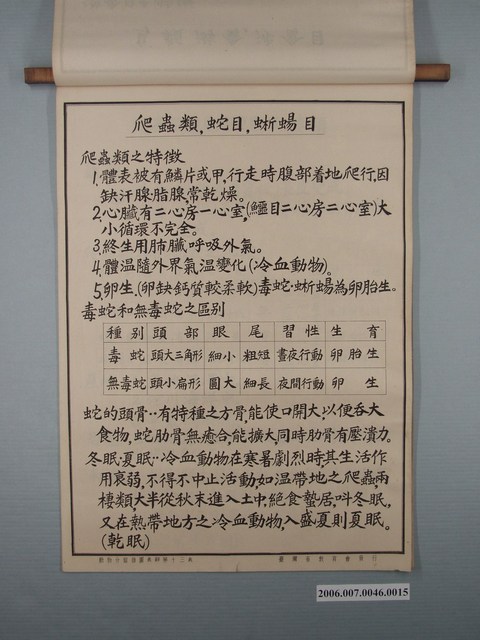 爬蟲類,蛇目,蜥蜴目
爬蟲類之特徵
1.體表被有鱗片或甲,行走時腹部着地爬行,因
缺汗腺脂腺,常乾燥。
2.心臟有二心房一心室,(鱷目二心房二心室)大
小循環不完全。
3.終生用肺臟呼吸外氣。
4.體温隨外界氣温變化(冷血動物)。
5.卵生.(卵缺鈣質較柔軟)毒蛇.蜥蜴為卵胎生。
毒蛇和無毒蛇之區別
種別 頭部 眼 尾 習性 生育
毒蛇 頭大三角形 細小 粗短 晝夜行動 卵胎生
無毒蛇 頭小扁形 圓大 細長 夜間行動 卵生
蛇的頭骨‥有特種之方骨,能使口開大,以便吞大
食物,蛇肋骨無癒合,能擴大,同時肋骨有壓潰力。
冬眠.夏眠‥冷血動物在寒暑劇烈時其生活作
用衰弱,不得不中止活動,如温帶地之爬蟲兩
棲類,大半從秋末進入土中,絕食蟄居,叫冬眠,
又在熱帶地方之冷血動物,入盛夏則夏眠。
(乾眠)
2006.007.0046.0015